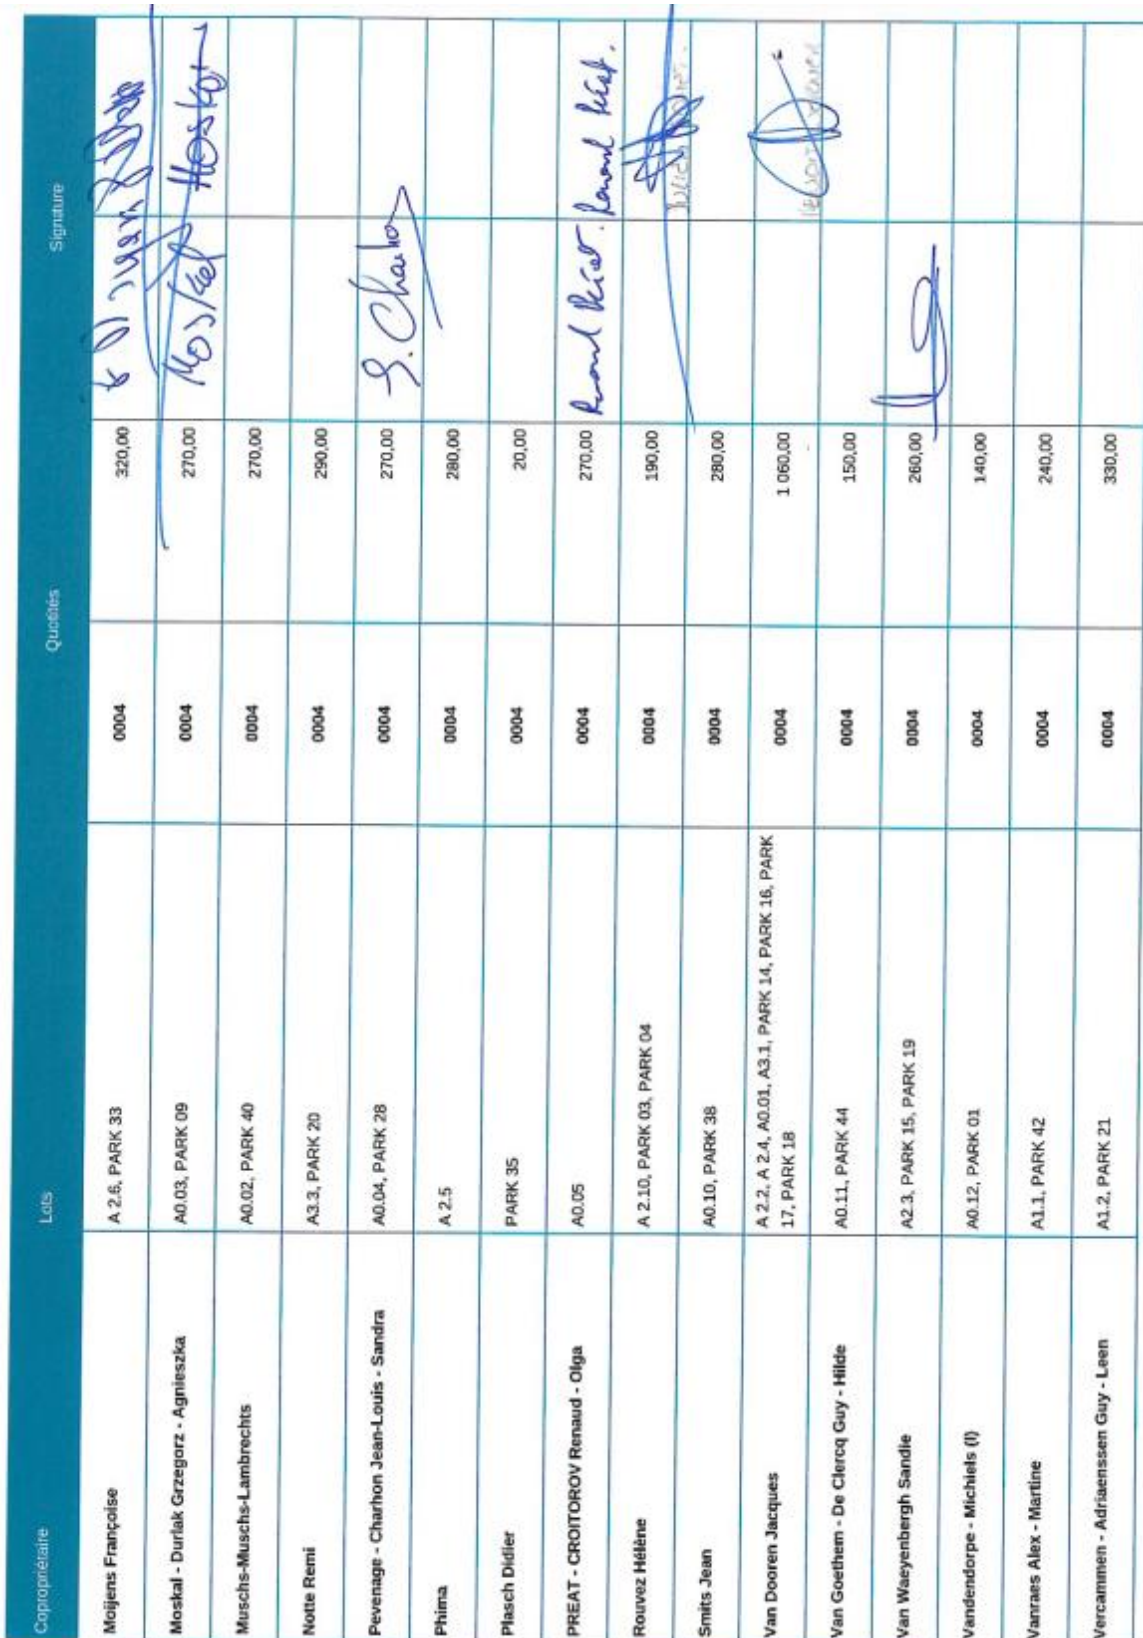 Copropriétaire Lots Quotités Signature
Moijens Françoise A 2.6, PARK 33 0004 320,00
Moskal - Durlak Grzegorz - Agnieszka A0.03, PARK 09 0004 270,00 Moskal Moskal
Muschs-Muschs-Lambrechts A0.02, PARK 40 0004 270,00
Notte Remi A3.3, PARK 20 0004 290,00
Pevenage - Charhon Jean-Louis - Sandra A0.04, PARK 28 0004 270,00 S. Charhon
Phima A 2.5 0004 280,00
Plasch Didier PARK 35 0004 20,00
PREAT - CROITOROV Renaud - Olga A0.05 0004 270,00 Renaud Préat. Renaud Préat.
Rouvez Hélène A 2.10, PARK 03, PARK 04 0004 190,00
Smits Jean A0.10, PARK 38 0004 280,00
Van Dooren Jacques A 2.2, A 2.4, A0.01, A3.1, PARK 14, PARK 16, PARK 0004 1 060,00
17, PARK 18
Van Goethem - De Clercq Guy - Hilde A0.11, PARK 44 0004 150,00
Van Waeyenbergh Sandie A2.3, PARK 15, PARK 19 0004 260,00
Vandendorpe - Michiels (I) A0.12, PARK 01 0004 140,00
Vanraes Alex - Martine A1.1, PARK 42 0004 240,00
Vercammen - Adriaenssen Guy - Leen A1.2, PARK 21 0004 330,00